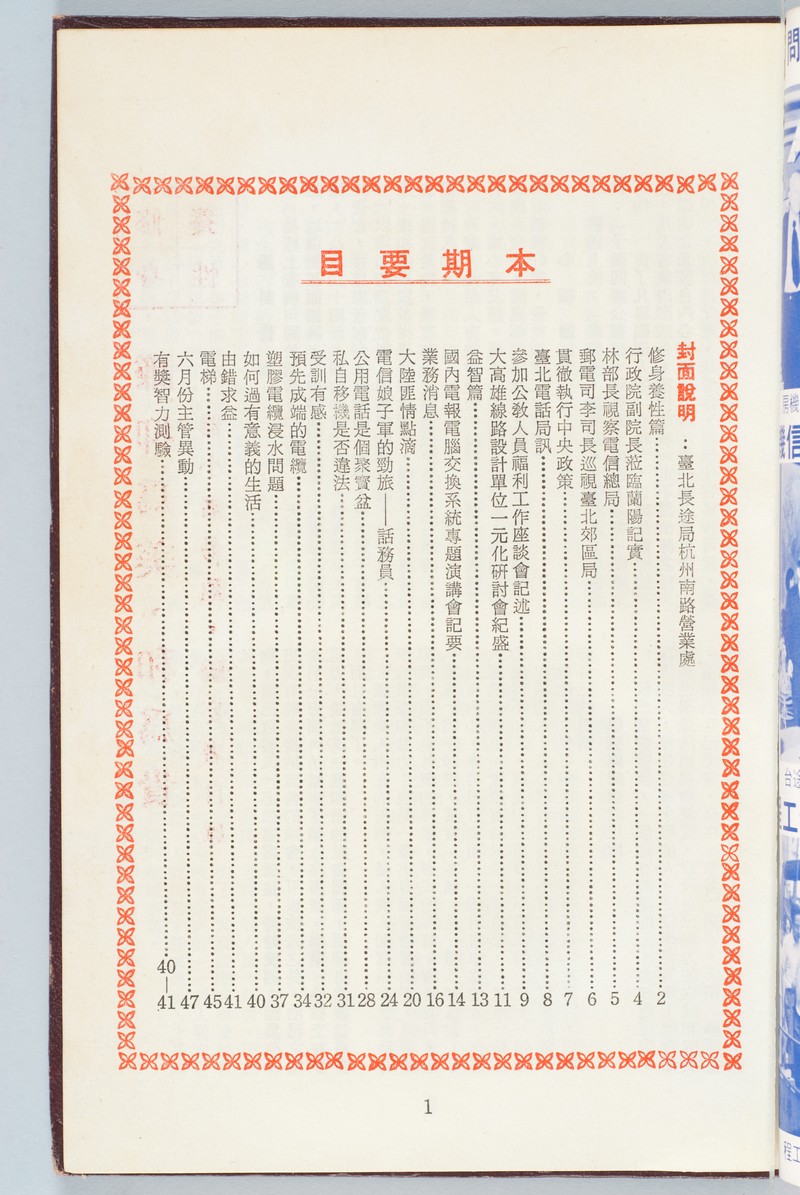 本期要目
封面說明：臺北長途局杭州南路營業處
修身養性篇……2
行政院副院長蒞臨蘭陽記實……4
林部長視察電信總局……5
郵電司李司長巡視臺北郊區局……6
貫徹執行中央政策……7
臺北電話局訊……8
參加公教人員福利工作座談會記述……9
大高雄線路設計單位一元化研討會紀盛……11
益智篇……13
國內電報電腦交換系統專題演講會記要……14
業務消息……16
大陸匪情點滴……20
電信娘子軍的勁旅——話務員……24
公用電話是個聚寶盆……28
私自移機是否違法……31
受訓有感……32
預先成端的電纜……34
塑膠電纜浸水問題……37
如何過有意義的生活……40
由錯求益……41
電梯……45
六月份主管異動……47
有獎智力測驗……40—41
1